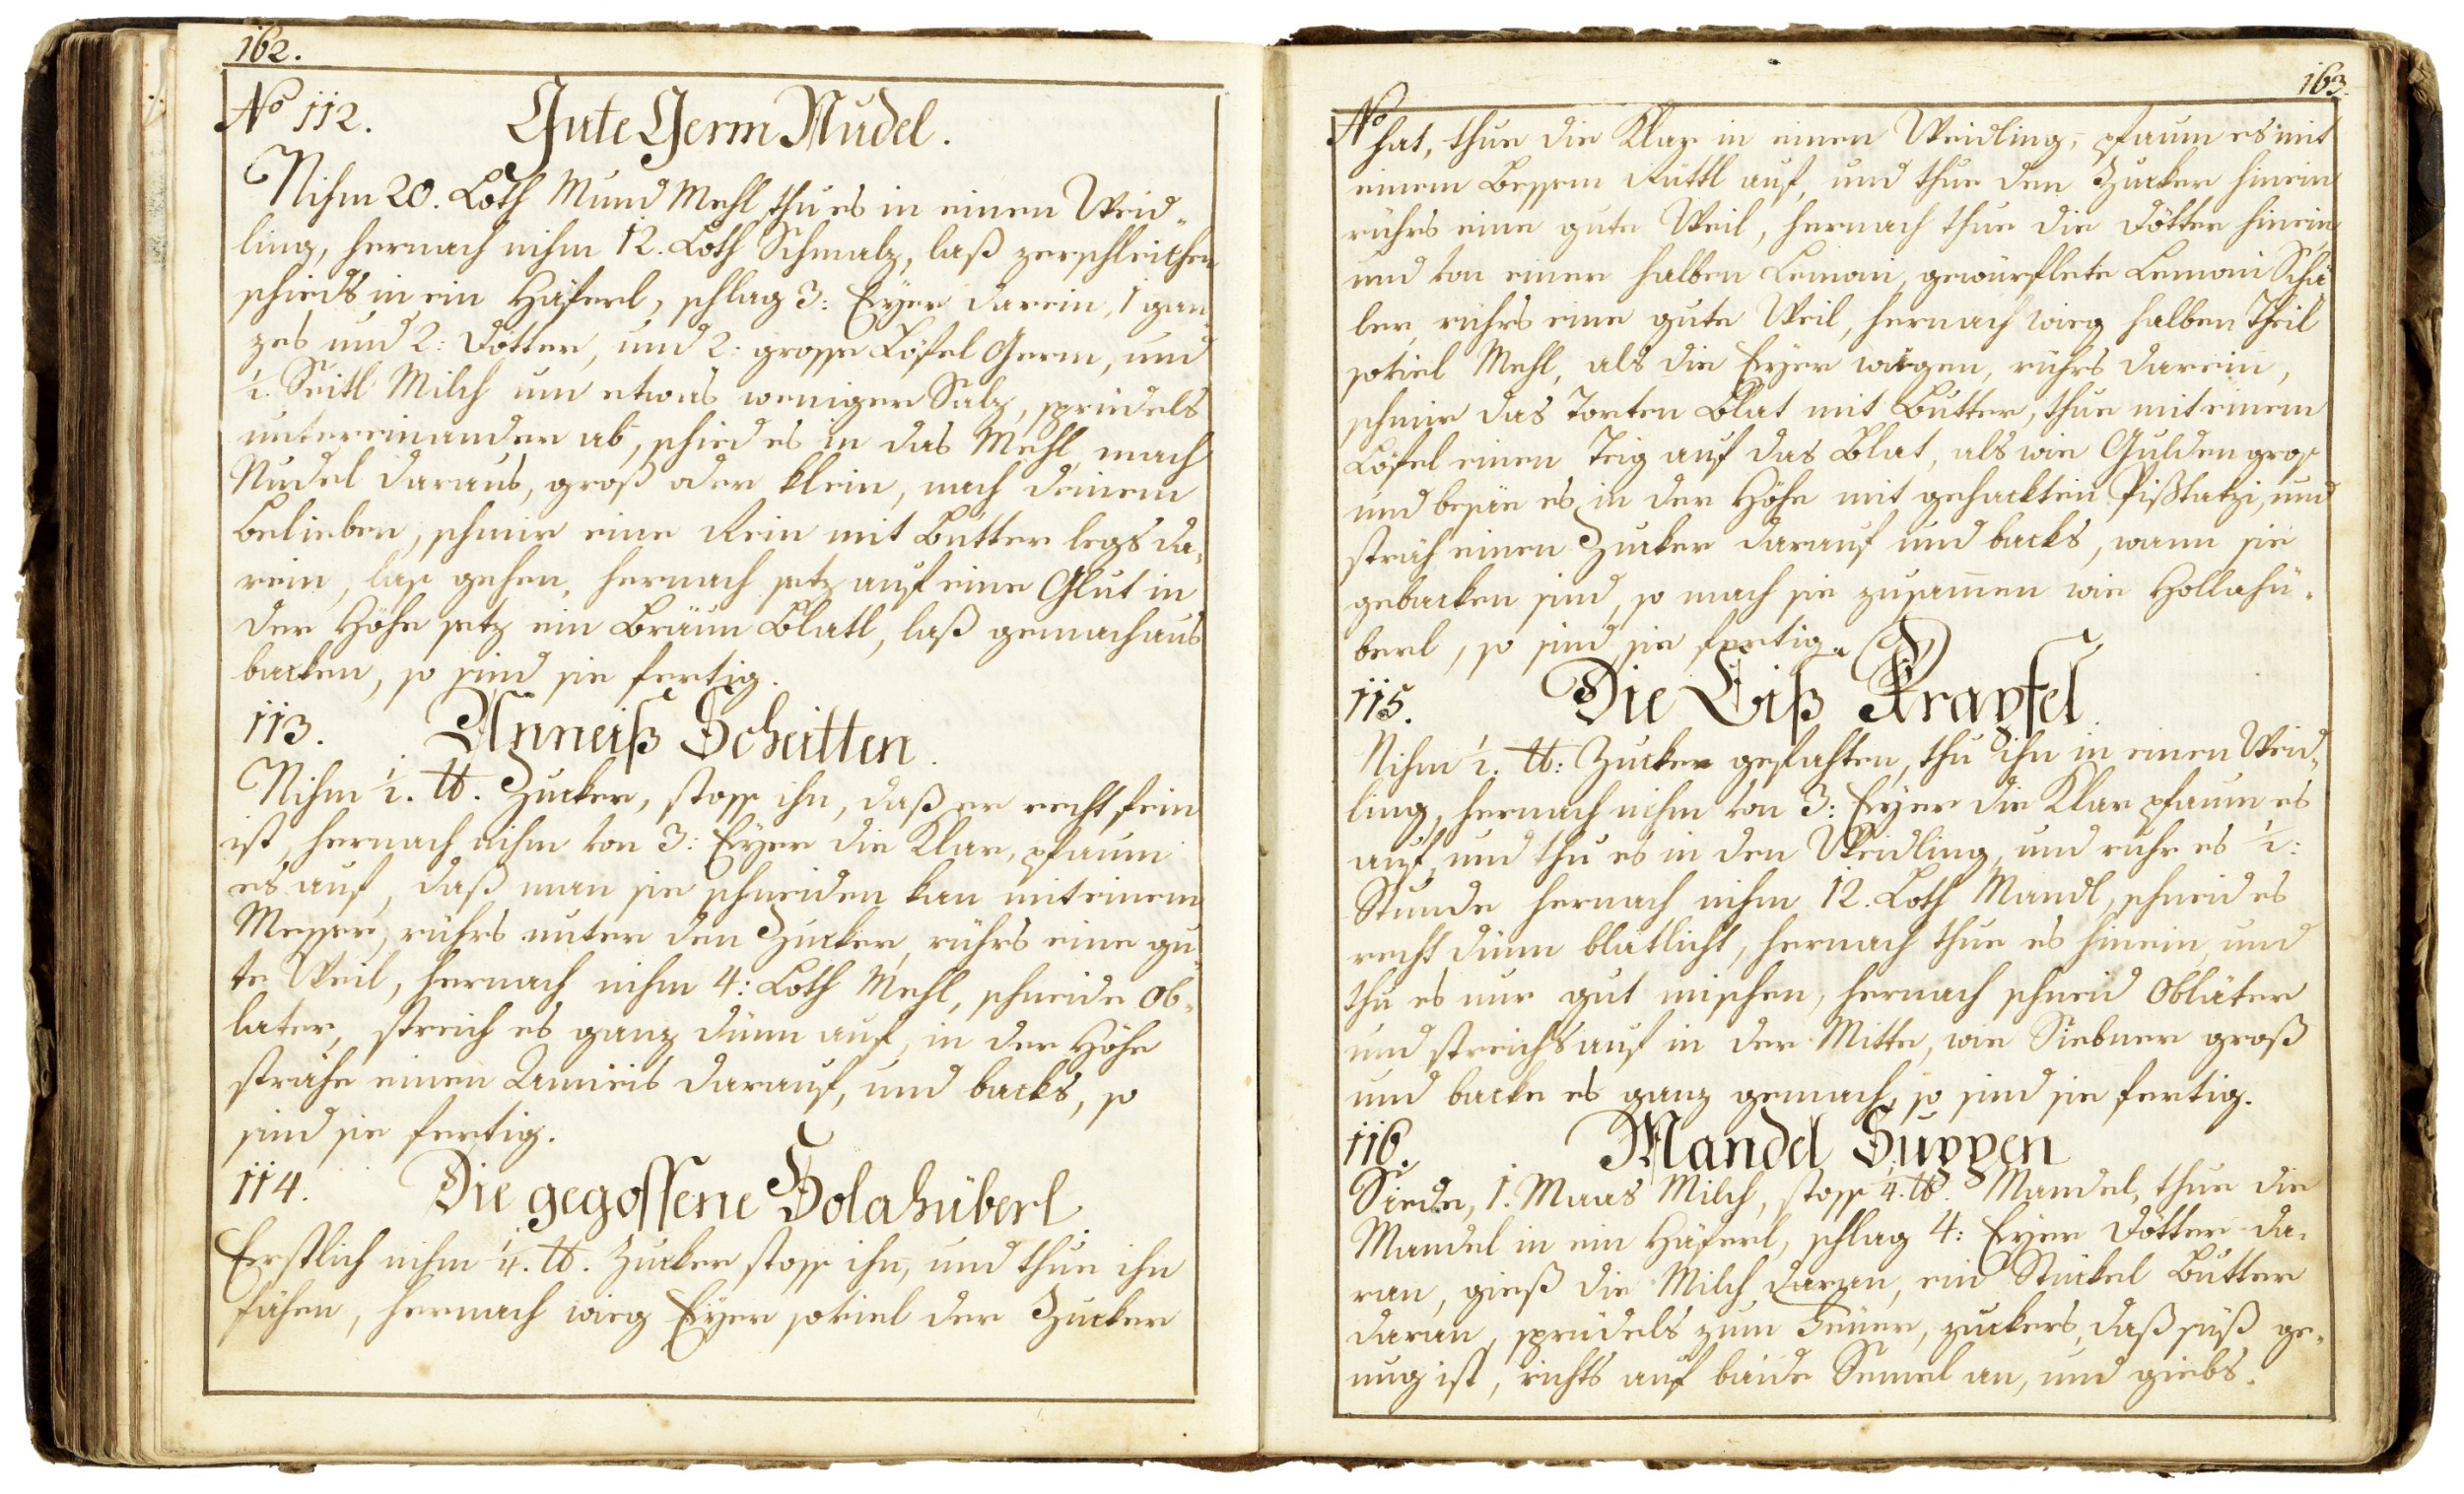 162.
No 112. Gute Germ Nudel.
Nihm 20. Loth Mund Mehl thu es in einen Weid„
ling, hernach nihm 12. Loth Schmalz, laß zerschleichen
schieds in ein Häferl, schlag 3: Eÿer darein, 1 gan„
zes und 2: Dötter, und 2: grosse Löfel Germ, und
½. Seitl Milch um etwas weniger Salz, sprudels
untereinander ab, schied es in das Mehl, mach
Nudel daraus, groß oder klein, nach deinem
Belieben, schmir eine Rein mit Butter legs da„
rein, lass gehen, hernach setz auf eine Glut in
der Höhe setz ein Bräun Blatl, laß gemach aus
backen, so sind sie fertig.
113. Anneiß Scheitten.
Nihm ½. ℔. Zucker, stosse ihn, daß er recht fein
ist, hernach nihm von 3: Eÿer die Klar, pfaum
es auf, daß man sie schneiden kan mit einem
Messer, rührs unter den Zucker, rührs eine gu„
te Weil, hernach nihm 4: Loth Mehl, schneide Ob„
later, streich es ganz dünn auf, in der Höhe
strähe einen Anieis darauf, und backs, so
sind sie fertig.
114. Die gegossene Holahüberl.
Erstlich nihm ¼. ℔. Zucker stosse ihn, und thue ihn
fähen, hernach wieg Eÿer soviel der Zucker
163.
No
hat, thue die Klar in einen Weidling, pfaum es mit
einem Bessem Rüttl auf, und thue den Zucker hinein
rührs eine gute Weil, hernach thue die Dötter hinein
und von einer halben Lemoni, gewürflete Lemoni Schä
ler, rührs eine gute Weil, hernach wieg halben Theil
soviel Mehl, als die Eÿer wiegen, rührs darein,
schmir das Torten Blat mit Butter, thue mit einem
Löfel einen Teig auf das Blat, als wie Gulden gross
und besäe es in der Höhe mit gehackten Pißtatzi, und
sträh einen Zucker darauf und backs, wann sie
gebacken sind, so mach sie zusam̄en wie Hollahü„
berl, so sind sie fertig.
115. Die Eiß Krapfel.
Nihm ½. ℔: Zucker gefahten, thu ihn in einen Weid„
ling, hernach nihm von 3: Eÿer die Klar pfaum es
auf, und thu es in den Weidling, und rühr es ½:
Stunde hernach nihm 12. Loth Mandl, schneid es
recht dünn blätlicht, hernach thue es hinein, und
thu es nur gut mischen, hernach schneid Oblater
und streichs auf in der Mitte, wie Siebner groß
und backe es ganz gemach, so sind sie fertig.
116. Mandel Suppen
Siede, 1. Maas Milch, stosse ¼. ℔. Mandel, thue die
Mandel in ein Häferl, schlag 4: Eÿer Dötter da„
ran, gieß die Milch daran, ein Stückel Butter
daran, sprudels zum Feuer, zuckers, daß süß ge„
nug ist, richts auf baide Semel an, und giebs.